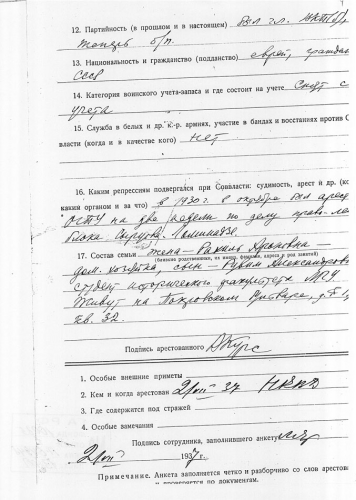 12. Партийность (в прошлом и в настоящем) был чл.
теперь б/п.
13. Национальность и гражданство (подданство) еврей, граждан
СССР
14. Категория воинского учета-запаса и где состоит на учете Снят с
учета
15. Служба в белых и др. к.-р. армиях, участие в бандах и восстаниях против С
власти (когда и в качестве кого) нет
16. Каким репрессиям подвергался при Соввласти: судимость, арест и др. (ко
каким органом и за что) в 1930 г. в октябре был арест
ОГПУ на две недели по делу право-ле
блока Сырцова-Ломинадзе.
17. Состав семьи жена-
(близкие родственники, их имена, фамилии, адреса и род занятий)
дом. хозяйка, сын - Рувим Александрович
студент исторического факультета МГУ
Живут на Покровском бульваре,
кв. 32.
Подпись арестованного
1. Особые внешние приметы
2. Кем и когда арестован 37 НКВД
3. Где содержится под стражей
4. Особые замечания
Подпись сотрудника, заполнившего анкету
1937 г.
Примечание. Анкета заполняется четко и разборчиво со слов арестов
и проверяется по документам.